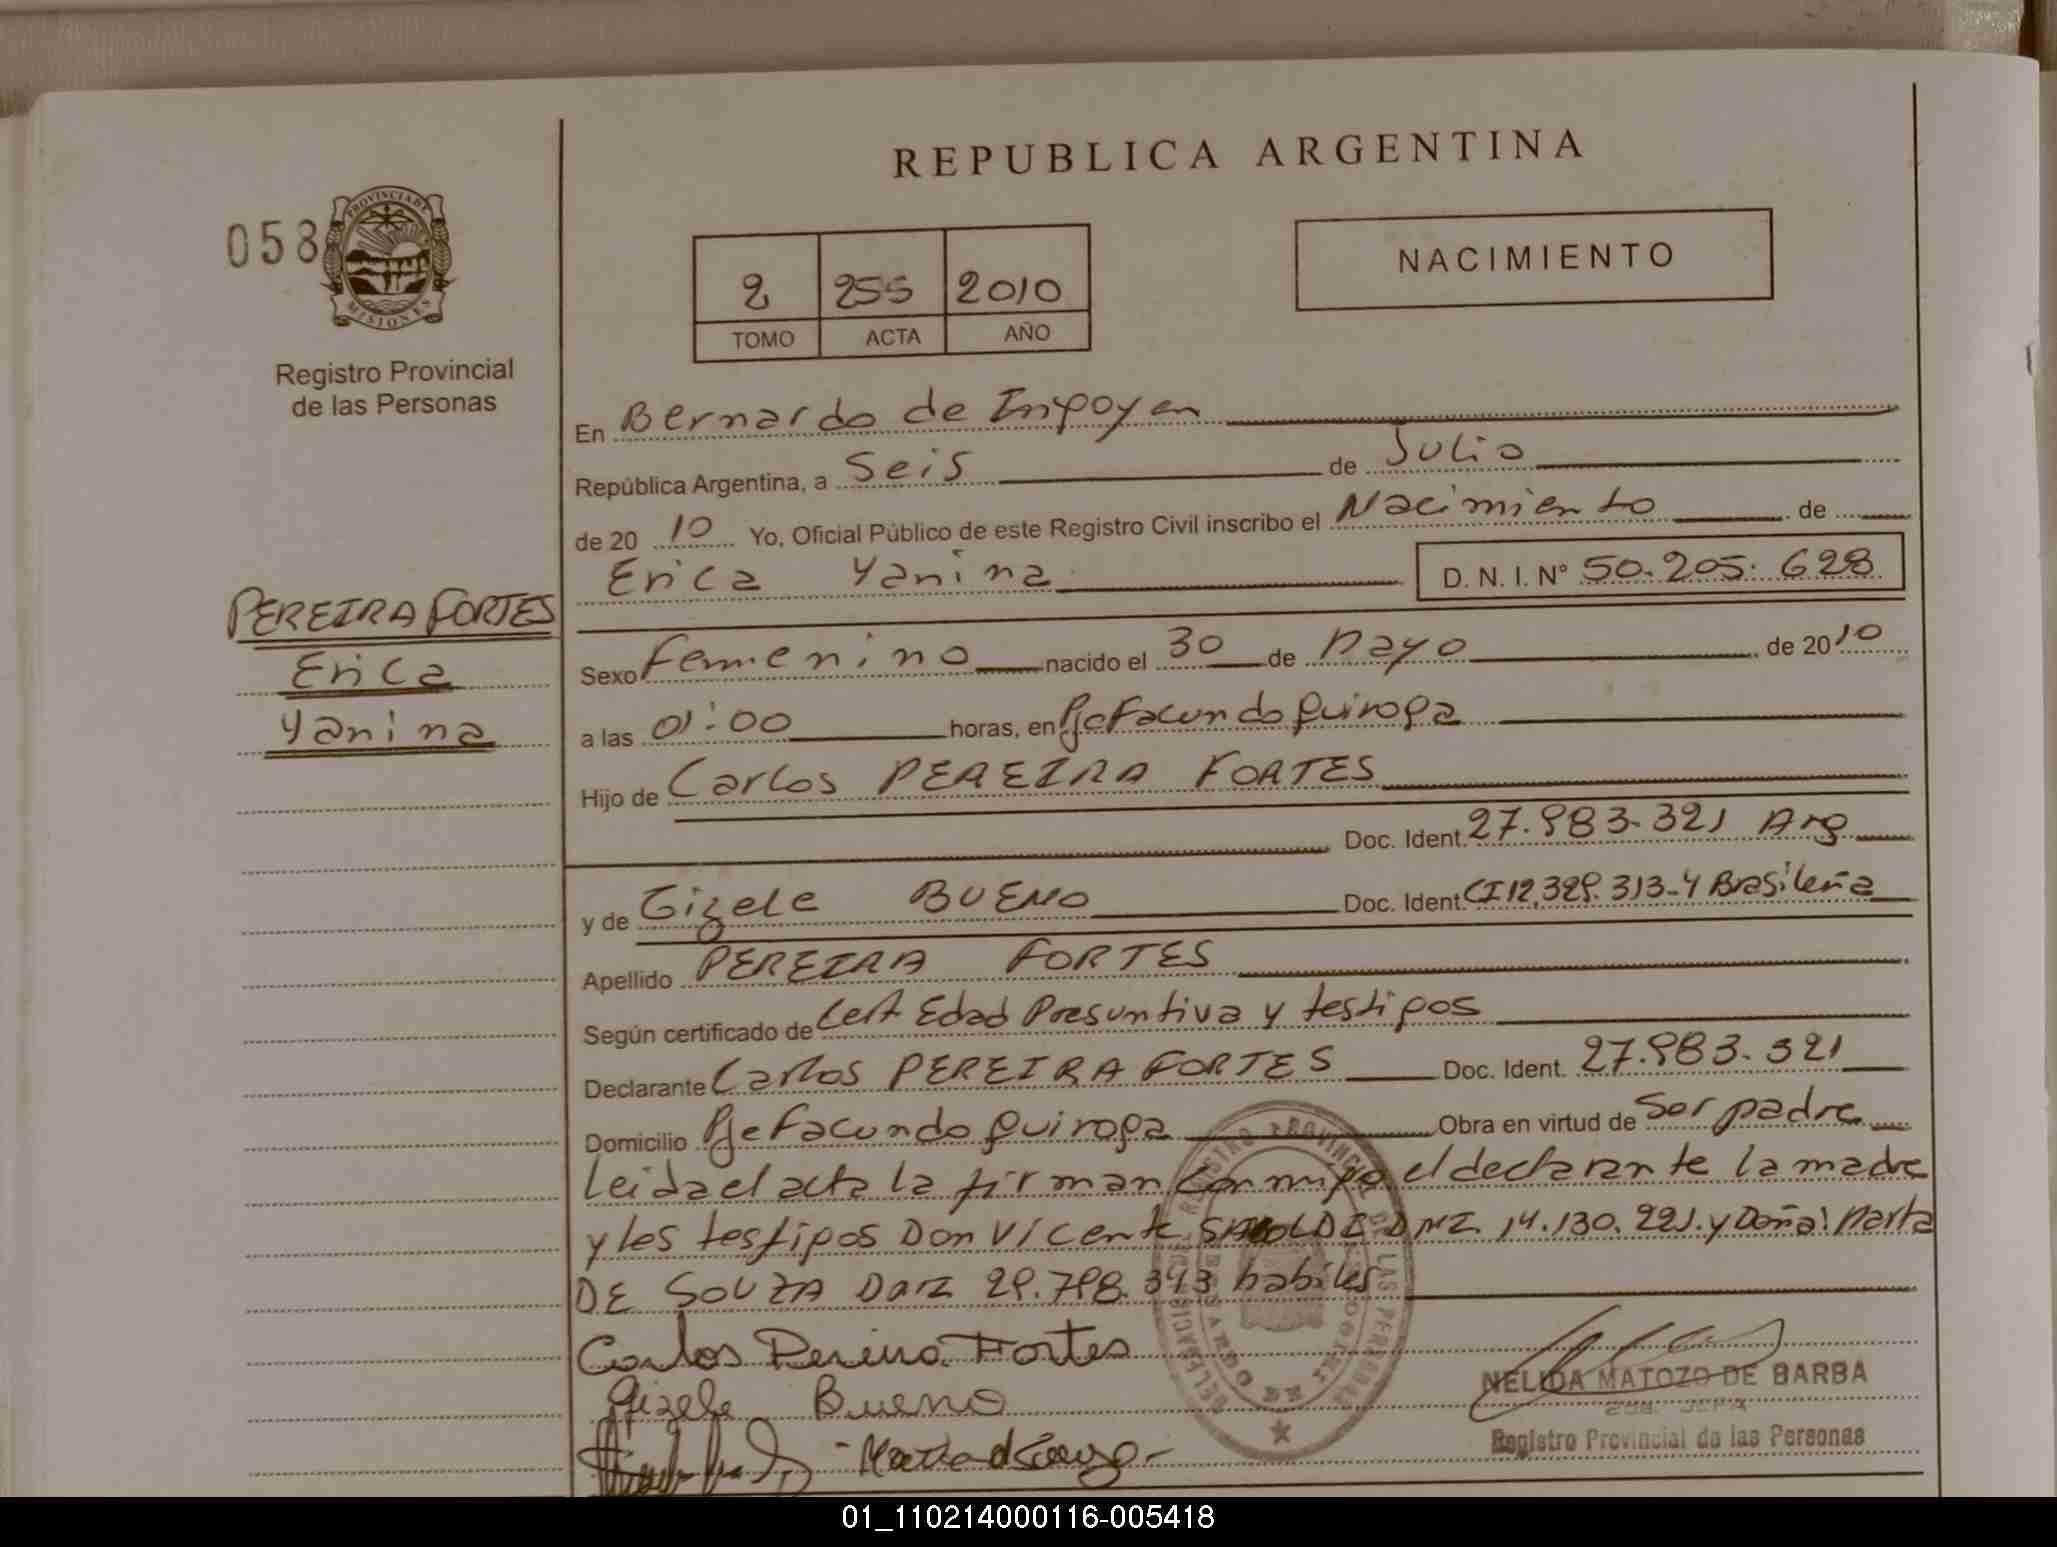 REPUBLICA ARGENTINA
058
PROVINCIA DE
MISIONES
Registro Provincial
de las Personas
2 255 2010
TOMO ACTA AÑO
NACIMIENTO
En Bernardo de Irigoyen
República Argentina, a Seis de Julio
de 20 10 Yo, Oficial Público de este Registro Civil inscribo el Nacimiento de
Erica Yanina D. N. I. N° 50.205.628
PEREIRA FORTES
Erica
Yanina
Sexo Femenino nacido el 30 de Mayo de 2010
a las 01:00 horas, en Pje Facundo Quiroga
Hijo de Carlos PEREIRA FORTES
Doc. Ident. 27.983.321 Arg
y de Gizele BUENO Doc. Ident. CI 12,329.313-4 Brasileña
Apellido PEREIRA FORTES
Según certificado de Cert Edad Presuntiva y testigos
Declarante Carlos PEREIRA FORTES Doc. Ident. 27.983.321
Domicilio Pje Facundo Quiroga Obra en virtud de Ser padre
Leida el acta la firman conmigo el declarante la madre
y los testigos Don Vicente DNI. 14.130.221. y Doña: Marta
DE SOUZA DNI 29.798.343 habiles
Carlos Pereira Fortes
Gizele Bueno
NELIDA MATOZO DE BARBA
SUB. JEFA
Registro Provincial de las Personas
01_110214000116-005418